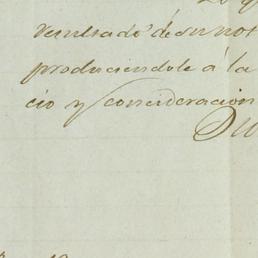 resultado de su not
produciendole á la
cio y consideracion